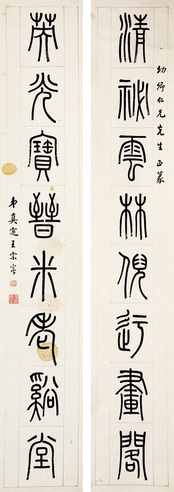 幼卿仁兄先生正篆
清祕雲林倪迂畫閣
英光寶晉米老谿堂
弟真定王宗